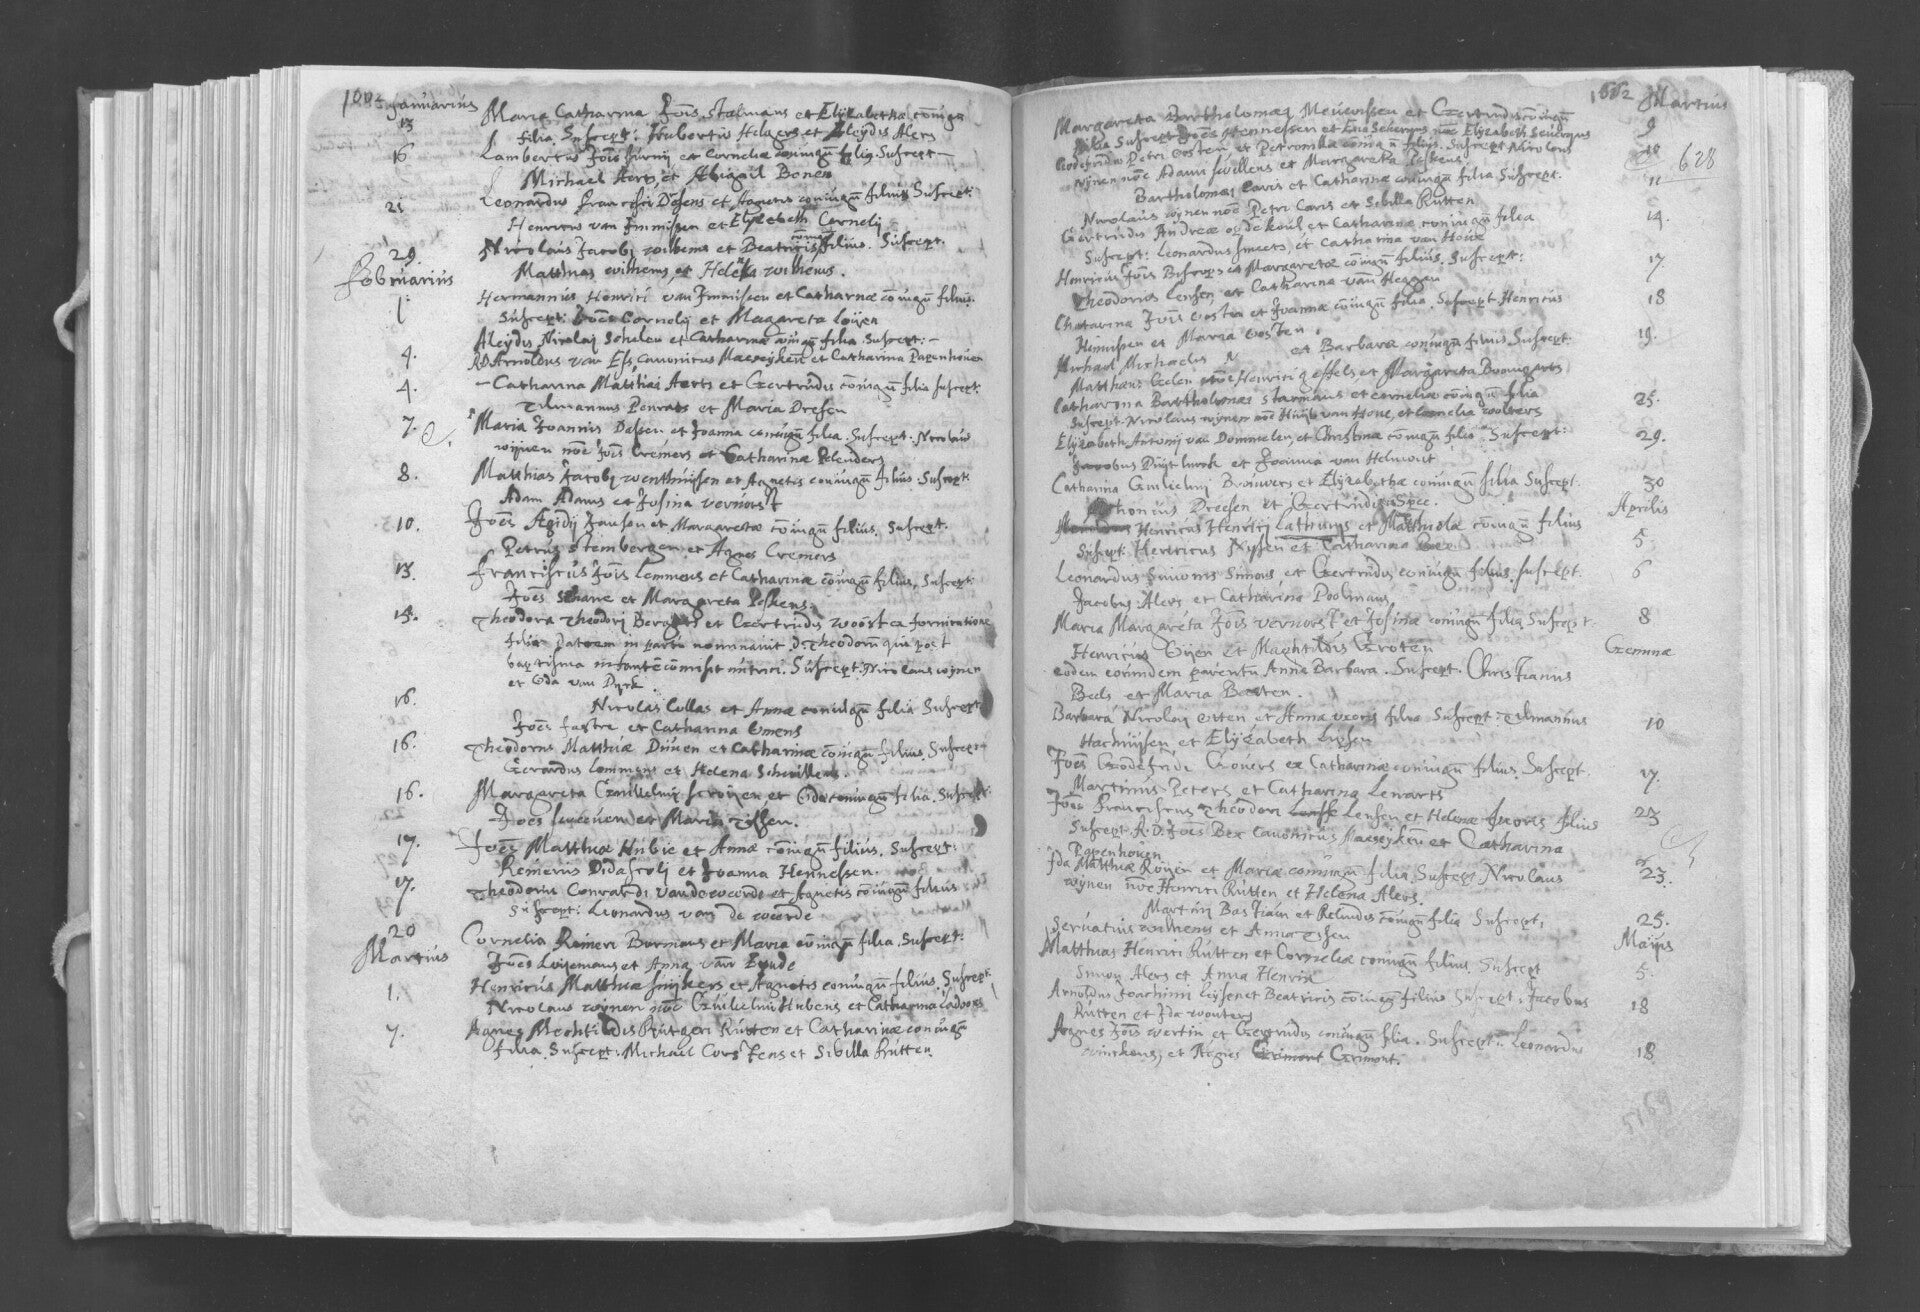 1662 Januarius
13 Maria Catharina Joīs Stalmans et Elyzabethæ coniugū
filia. Suscept: Hubertus Helgers et Aleydis Alers
16 Lambertus Joīs et Corneliæ coniugū filiꝯ. Suscept
Michael Aerts et Abigail Bonen
21 Leonardus Francisci Dessens et Agnetis coniugū filius Suscept:
Henricus van Immissen et Elyzabeth Cornelij
29 Nicolaus Jacobj wilhems et Beatricis coniugū filius. Suscept.
Matthias wilhems et Helena wilhems.
Februarius
1. Hermannus Henrici van Immissen et Catharnæ coniugū filius.
Suscept: Joēs Cornelij et Magareta
4. Aleydis Nicolaj et Catharinæ coniugū filia. Suscept:
RD Arnoldus van Ess, canonicus Maeseykēn et Catharina Papenhoven
4. Catharina Matthiæ Aerts et Gertrudis coniugū filia suscept:
Tilmannus Penrats et Maria Dresen
7. Maria Joannis Dessen et Joanna coniugū filia. Suscept. Nicolaus
wijnen noē Joīs Cremers et Catharinæ Pelenders
8. Matthias Jacobj et Agnetis coniugū filius. Suscept:
Adam Adams et Josina vervorst
10. Joēs Ægidij Jansen et Margaretæ coniugū filius. Suscept.
Petrus Stembergen et Agnes Cremers
13. Franciscus Joīs Lemmens et Catharinæ coniugū filius. Suscept:
Joēs et Margareta Peskens.
15. Theodora Theodori et Gertrudis woost ex fornicatione
filia. Patrem in partu nominavit D. Theodorū qui post
baptisma infantē comisit nutrici. Suscept: Nicolaus wijnen
et Oda van Dyck.
16. Nicolai Collas et Annæ coniugū filia Suscept:
Joēs Fastre et Catharina Emens
16. Theodorus Matthiæ Duven et Catharinæ coniugū filius. Suscept
Gerardus Lommens et Helena Schuillens.
16. Margareta Guilielmi et Odæ coniugū filia. Suscept:
Joēs et Maria Tissen.
17. Joēs Matthiæ Hubic et Annæ coniugū filius. Suscept:
Reinerus Didascoli et Joanna Hennessen.
17. Theodorus Conrardi van de weerde et Agnetis coniugū filius
Suscept: Leonardus van de weerde
20 Cornelia Reineri Bormans et Maria coniugū filia. Suscept:
Martius Joēs Luijemans et Anna van Eynde
1. Henricus Matthiæ Snijkers et Agnetis coniugū filius. Suscept:
Nicolaus wijnen noē Guilielmi Hubens et Catharina
7. Agnes Mechtildis Rutgeri Rutten et Catharinæ coniugū
filia. Suscept: Michael Corstens et Sibilla Rutten.
1662 Martius
Margareta Bartholomæj Meuwissen et Gertrudis coniugū 9
filia Suscept: Joēs Hennessen et Eva Severijns noē Elyzabeth Severijns
Godefridus Petri Oosten et Petronillæ coniugū filius. Suscept Nicolaus 10
628
wijnen noē Adami Swillens et Margareta Peskens
Bartholomæj Caris et Catharinæ coniugū filia Suscept. 11
Nicolaus wijnen noē Petri Caris et Sibilla Rutten
Gertrudis Andreæ op de kouL et Catharinæ coniugū filia 14.
Suscept: Leonardus Smeets et Catharina van Hove
Henricus Joīs et Margaretæ coniugū filius. Suscept: 17.
Theodorus Lensen et Catharina van Heggen
Chatarina Joīs Oosten et Joannæ coniugū filia. Suscept. Henricus 18
et Maria Oosten.
Michael Michaelis N et Barbaræ coniugū filius Suscept. 19.
Matthæus Gielen noē Henrici Geffels et Margareta Boomgarts
Catharina Bartholomæi Starmans et Corneliæ coniugū filia 25.
Suscept. Nicolaus wijnen noē van Hove, et Cornelia wolters
Elyzabeth Antonij van Dommelen, et Christinæ coniugū filia. Suscept: 29.
Jacobus et Joanna van Helmont
Catharina Guilielmj Brouwers et Elyzabethæ coniugū filia Suscept. 30
Anthonius Dreesen et Gertrudis Spee. Aprilis
Henricus Henrici Lathuys et Mathiolæ coniugū filius 5.
Suscept: Henricus Nyssen et Catharina Bex
Leonardus Simonis Simons et Gertrudis coniugū filius. suscept: 6
Jacobus Alers et Catharina Poolmans
Maria Margareta Joīs vervorst et Josinæ coniugū filia Suscept: 8
Henricus Gijen et Maghtildis Groten Geminæ
eodem eorundem parentū Anna Barbara. Suscept. Christianus
Bects et Maria Baeten.
Barbara Nicolaij Orten et Annæ filia Suscept: Tilmannus 10
et Elyzabeth Lipsen
Joēs Godefridi Govers et Catharinæ coniugū filius. Suscept. 17.
Martinus Peters et Catharina Lenarts
Joēs Franciscus Theodori Lensen et Helenæ filius 23
Suscept. R.D. Joīs Bex Canonicus Maeseykēn et Catharina
Papenhoven
Ida Matthiæ Royen et Mariæ coniugū filia Suscept Nicolaus 23.
wijnen noē Henrici Rutten et Helena Alers.
Martini Bastian et Relindis coniugū filia Suscept: 25.
Servatius wilhems et Anna Tissen Maijus
Matthias Henrici Rutten et Corneliæ coniugū filius. Suscept 5.
Simon Alers et Anna Henrix
Arnoldus Joachimi Lijssen et Beatricis coniugū filius Suscept: Jacobus 18
Rutten et Ida wouters
Agnes Joīs wertin et Gertrudis coniugū filia. Suscept: Leonardus
winckens, et Agnes Grimont Grimont. 18